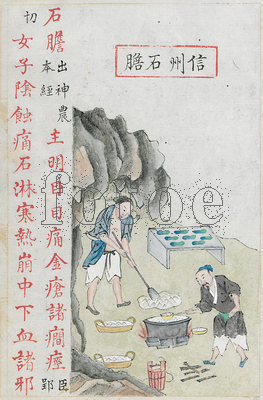 信州石膽
石膽出神農本經主明目目痛金瘡諸癇痓巨郢
切女子陰蝕痛石淋寒熱崩中下血諸邪
fotoe